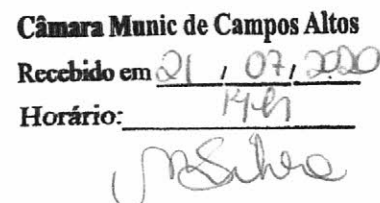 Câmara Munic de Campos Altos
Recebido em 21 / 07 / 2020
Horário: 14h